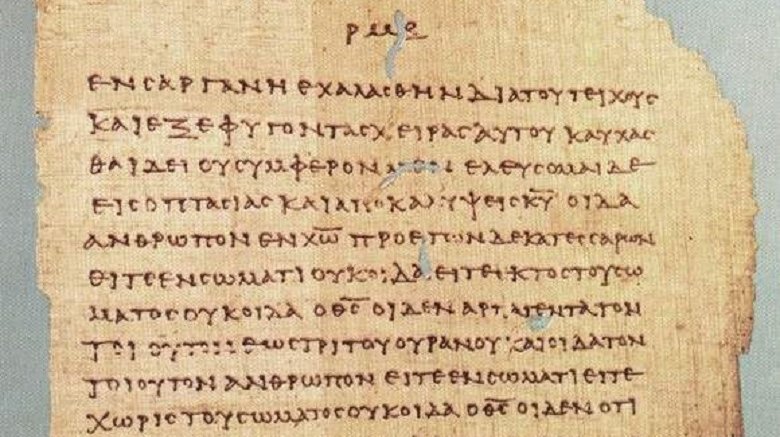 ΕΝϹΑΡΓΑΝΗΕΧΑΛΑϹΘΗΝΔΙΑΤΟΥΤΕΙΧΟΥϹ
ΚΑΙΕΞΕΦΥΓΟΝΤΑϹΧΕΙΡΑϹΑΥΤΟΥΚΑΥΧΑϹ
ΘΑΙΔΕΙΟΥϹΥΜΦΕΡΟΝΜΕΝΕΛΕΥϹΟΜΑΙΔΕ
ΕΙϹΟΠΤΑϹΙΑϹΚΑΙΑΠΟΚΑΛΥΨΕΙϹΚ̅Υ̅ΟΙΔΑ
ΑΝΘΡΩΠΟΝΕΝΧ̅Ω̅ΠΡΟΕΤΩΝΔΕΚΑΤΕϹϹΑΡΩΝ
ΕΙΤΕΕΝϹΩΜΑΤΙΟΥΚΟΙΔΑΕΙΤΕΕΚΤΟϹΤΟΥϹΩ
ΜΑΤΟϹΟΥΚΟΙΔΑΟΘ̅Ϲ̅ΟΙΔΕΝΑΡΠΑΓΕΝΤΑΤΟΝ
ΤΟΙΟΥΤΟΝΕΩϹΤΡΙΤΟΥΟΥΡΑΝΟΥΚΑΙΟΙΔΑΤΟΝ
ΤΟΙΟΥΤΟΝΑΝΘΡΩΠΟΝΕΙΤΕΕΝϹΩΜΑΤΙΕΙΤΕ
ΧΩΡΙϹΤΟΥϹΩΜΑΤΟϹΟΥΚΟΙΔΑΟΘ̅Ϲ̅ΟΙΔΕΝΟΤΙ